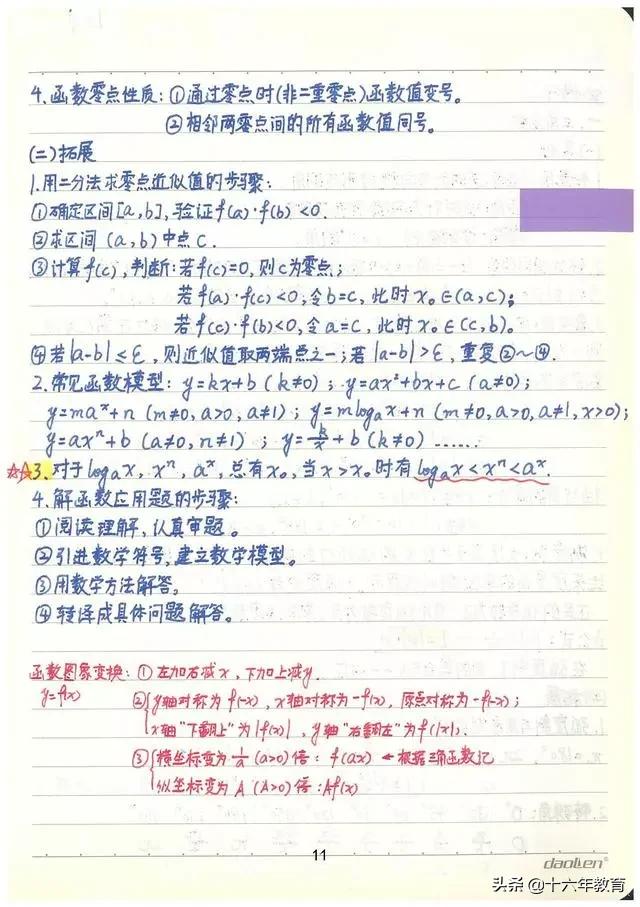 4.函数零点性质：①通过零点时(非二重零点)函数值变号。
②相邻两零点间的所有函数值同号。
(二)拓展
1.用二分法求零点近似值的步骤：
①确定区间[a,b],验证f(a)·f(b)<0.
②求区间(a,b)中点c.
③计算f(c),判断：若f(c)=0,则c为零点；
若f(a)·f(c)<0,令b=c,此时x₀∈(a,c)；
若f(c)·f(b)<0,令a=c,此时x₀∈(c,b)。
④若|a-b|≤ε,则近似值取两端点之一；若|a-b|>ε,重复②～④.
2.常见函数模型：y=kx+b(k≠0)；y=ax²+bx+c(a≠0)；
y=maˣ+n(m≠0,a>0,a≠1)；y=mlogₐx+n(m≠0,a>0,a≠1,x>0)；
y=axⁿ+b(a≠0,n≠1)；y=k/x+b(k≠0)……
3.对于logₐx,xⁿ,aˣ,总有x₀,当x>x₀时有logₐx<xⁿ<aˣ.
4.解函数应用题的步骤：
①阅读理解,认真审题。
②引进数学符号,建立数学模型。
③用数学方法解答。
④转译成具体问题解答。
函数图象变换：①左加右减x,下加上减y.
y=f(x) ②y轴对称为f(-x),x轴对称为-f(x),原点对称为-f(-x)；
x轴"下翻上"为|f(x)|,y轴"右翻左"为f(|x|).
③横坐标变为1/a(a>0)倍：f(ax) ←根据三角函数记
纵坐标变为A(A>0)倍：Af(x)
11
daolien
头条@十六年教育